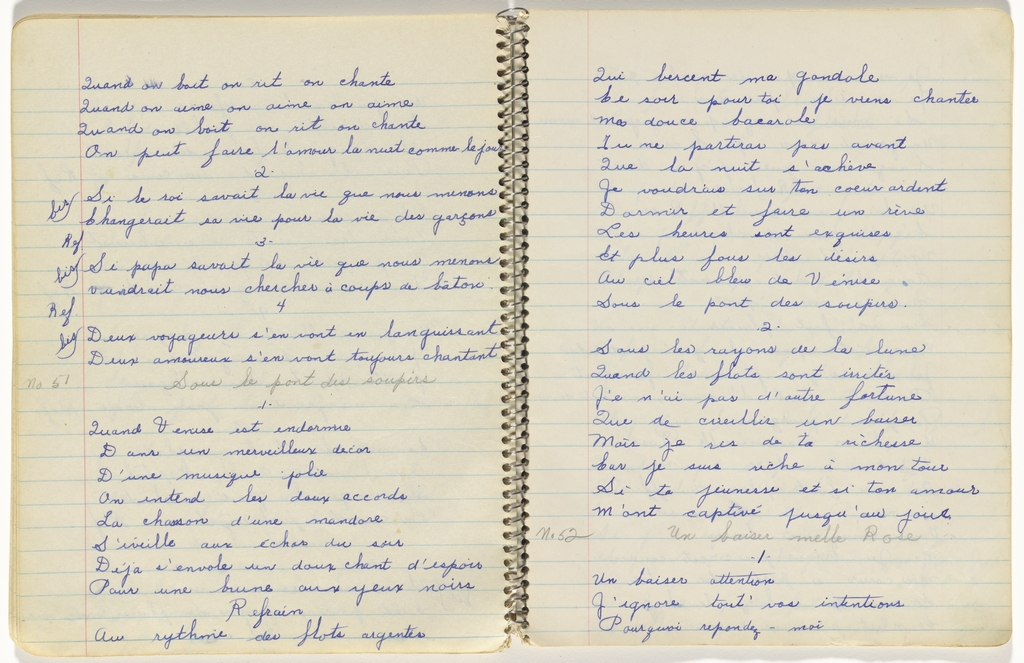 Quand on boit on rit on chante
Quand on aime on aime on aime
Quand on boit on rit on chante
On peut faire l'amour la nuit comme le jour
2.
bis Si le roi savait la vie que nous menons
Changerait sa vie pour la vie des garçons
Ref
3.
bis Si papa savait la vie que nous menons
Viendrait nous chercher à coups de bâton.
Ref
4
bis Deux voyageurs s'en vont en languissant
Deux amoureux s'en vont toujours chantant
No 51 Sous le pont des soupirs
1.
Quand Venise est endormie
Dans un merveilleux décor
D'une musique jolie
On entend les doux accords
La chanson d'une mandore
S'éveille aux échos du soir
Déjà s'envole un doux chant d'espoir
Pour une brune aux yeux noirs
Refrain
Au rythme des flots argentés
Qui bercent ma gondole
Ce soir pour toi je viens chanter
Ma douce bacarole
Tu ne partiras pas avant
Que la nuit s'achève
Je voudrais sur ton coeur ardent
Dormir et faire un rêve
Les heures sont exquises
Et plus fous les désirs
Au ciel bleu de Venise
Sous le pont des soupirs.
2.
Sous les rayons de la lune
Quand les flots sont irrités
Je n'ai pas d'autre fortune
Que de cueillir un baiser
Mais je ris de ta richesse
Car je suis riche à mon tour
Si ta jeunesse et si ton amour
M'ont captivé jusqu'au jour.
No 52 Un baiser melle Rose
1
Un baiser attention
J'ignore tout' vos intentions
Pourquoi repondez-moi